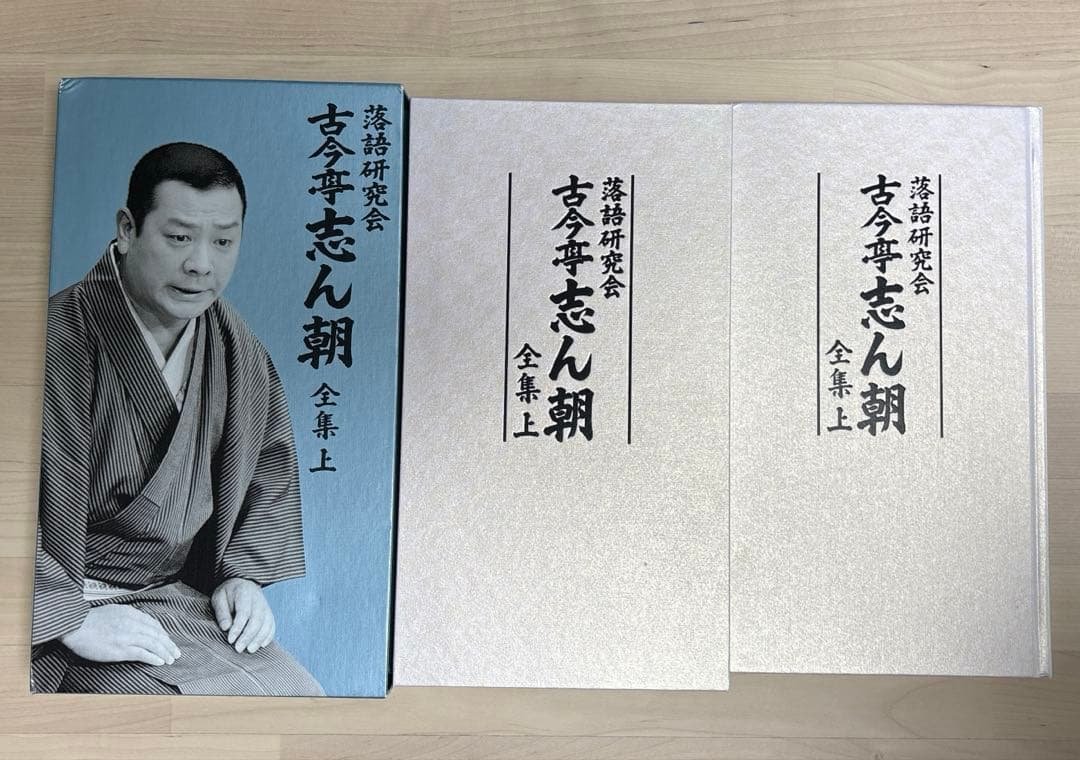 落語研究会
古今亭志ん朝
全集 上
落語研究会
古今亭志ん朝
全集 上
落語研究会
古今亭志ん朝
全集 上